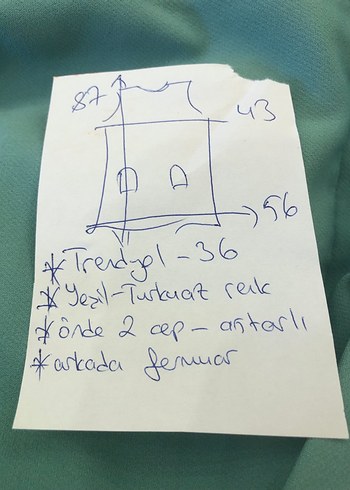 87
43
56
* Trendyol - 36
* Yeşil-Turkuaz renk
* önde 2 cep - astarlı
* arkada fermuar